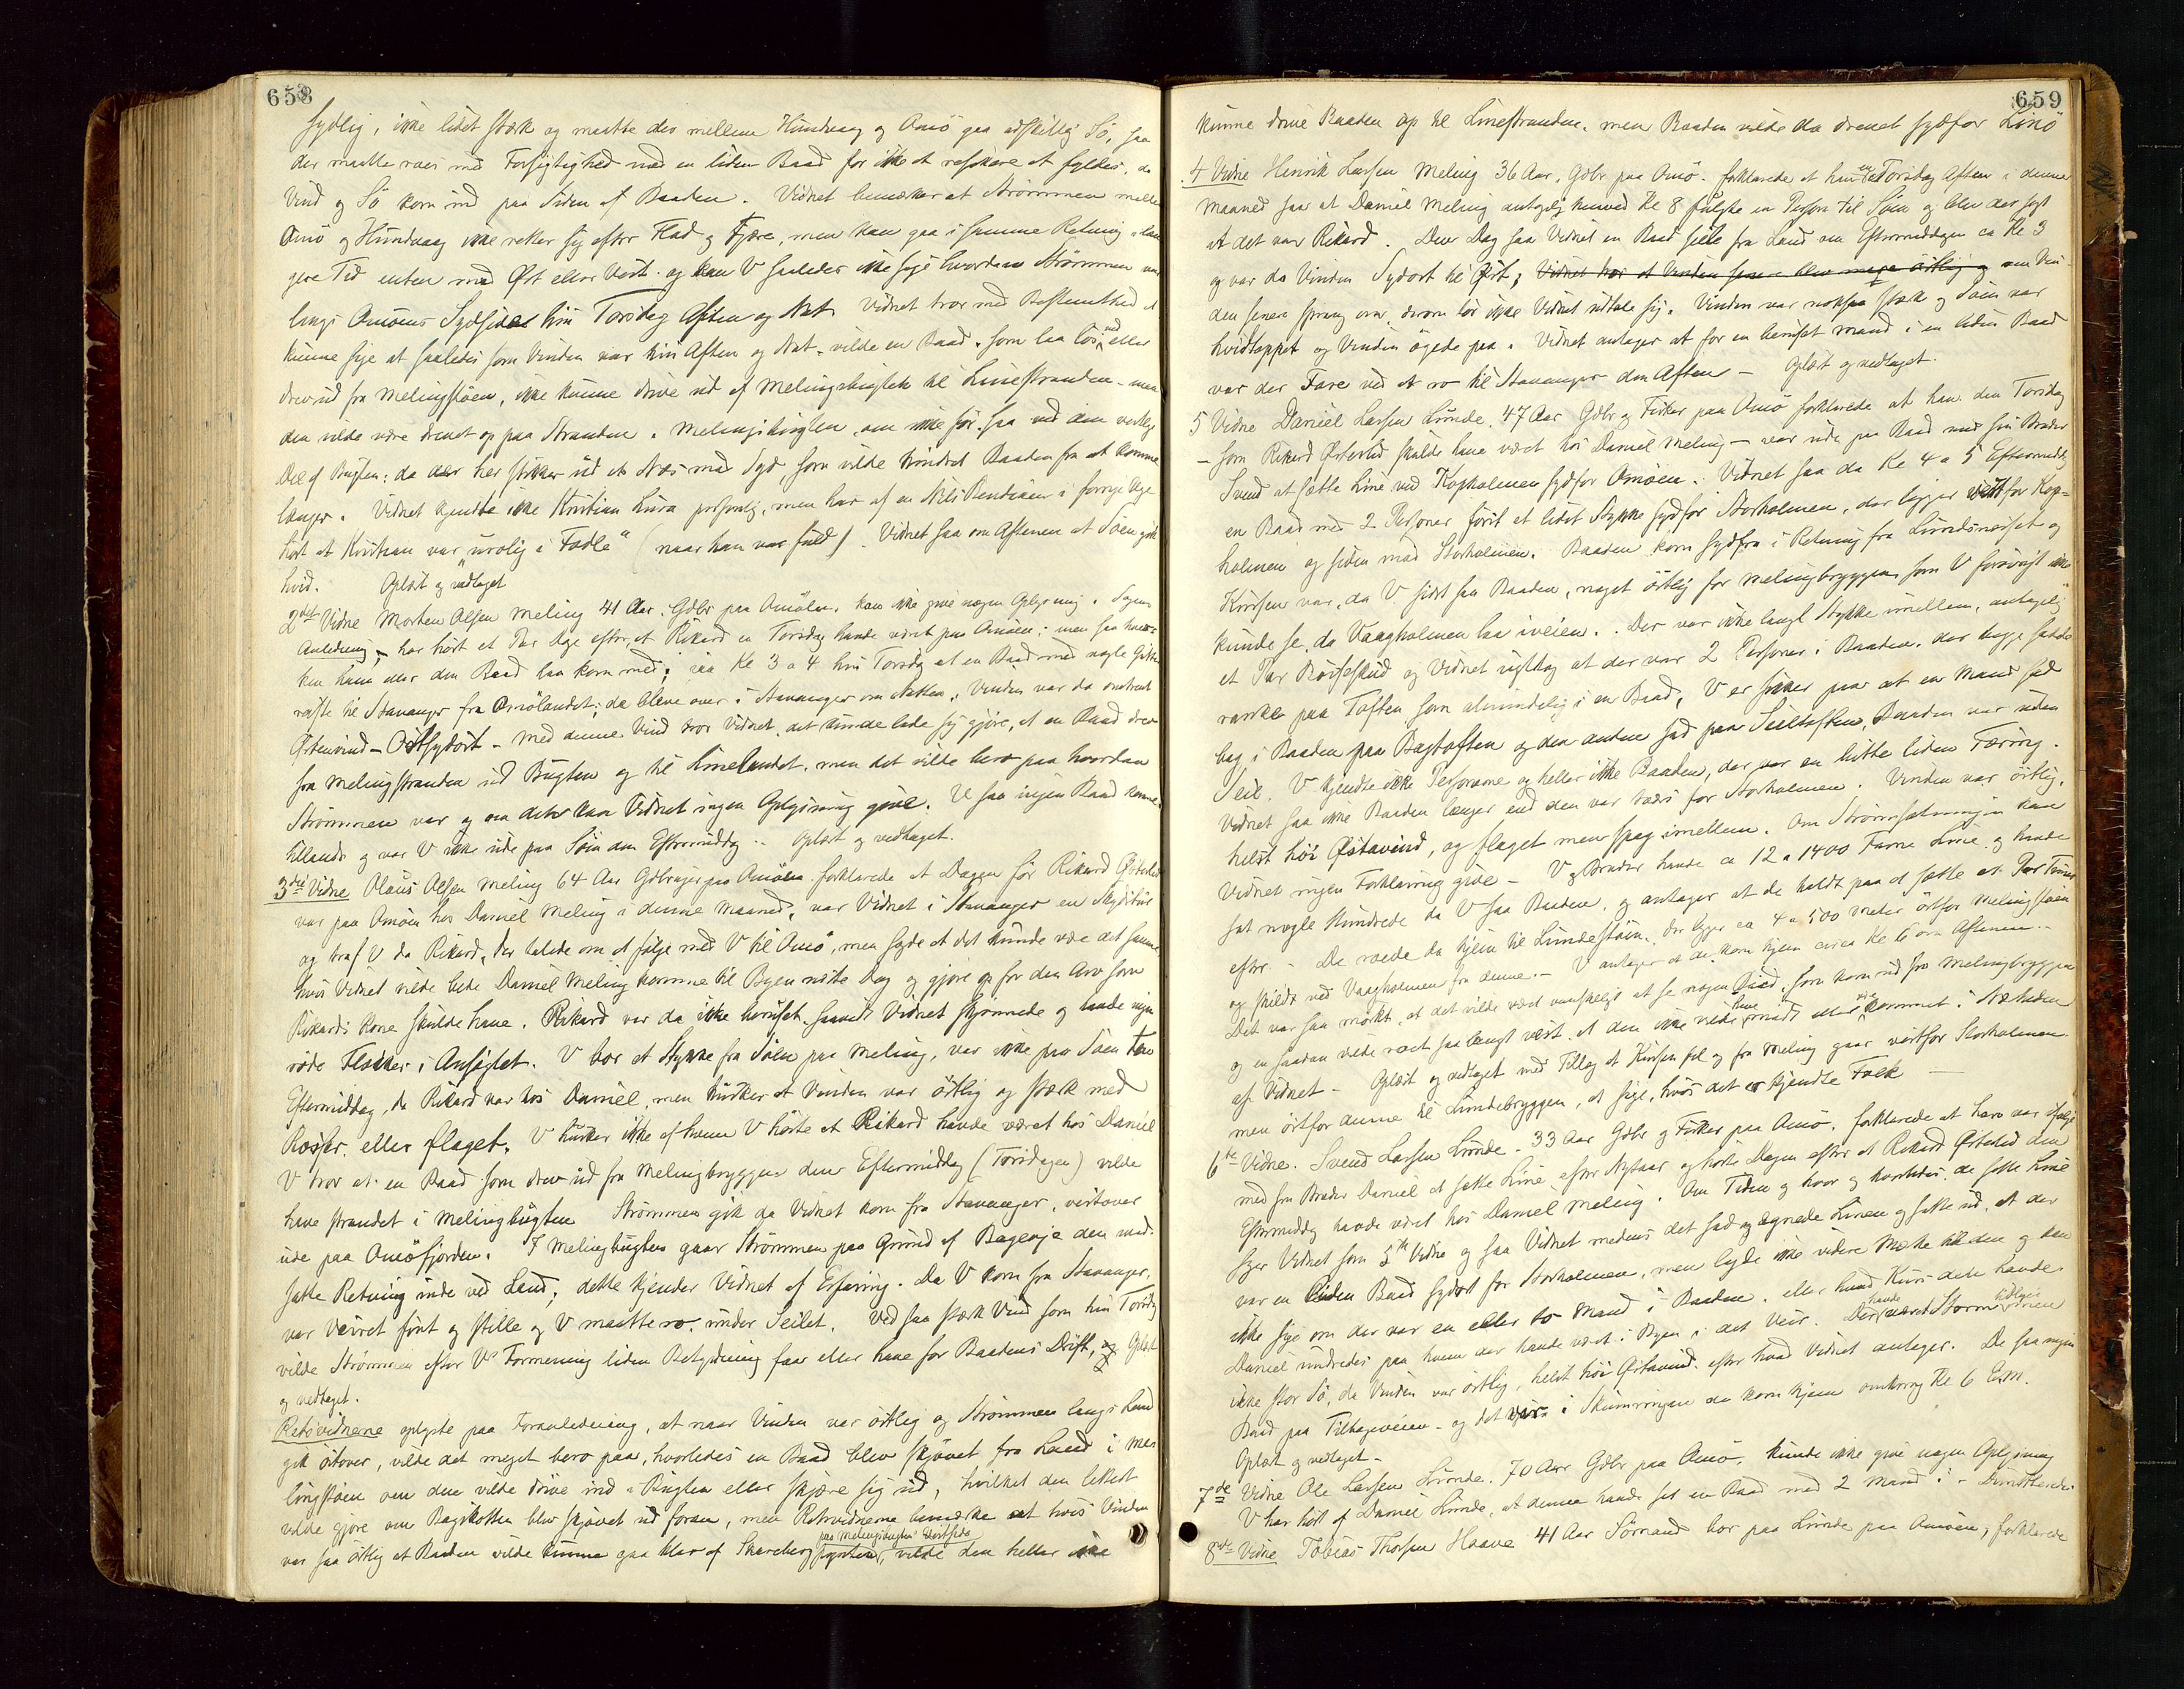 658
sydlig, ikke lidet stærk og maatte der mellem Hundvaag og Amö gaa adskillig Sö, saa
der maatte roes med Forsigtighed med en liden Baad for ikke at reskere at fyldes, da
Vind og Sö kom ind paa Siden af Baaden. Vidnet bemærker at Strømmen mellem
Amö og Hundvaag ikke retter sig efter Flod og Fjære, men kan gaa i samme Retning i læn
gere Tid enten mod Øst eller Vest, og kan V saaledes ikke sige hvordan Strømmen var
langs Amöens Sydside hin Torsdag Aften og Nat. Vidnet tror med Bestemthed at
kunne sige at saaledes som Vinden var hin Aften og Nat, vilde en Baad, som laa lös ved eller
drev ud fra Melingstöen, ikke kunne drive ud af Melingsbugten til Linestranden - men
den vilde være drevet op paa Stranden i Melingsbugten, om ikke för saa ved den vestlige
Del af Bugten; da der her stikker ud et Næs mod Syd, som vilde hindret Baaden fra at komme
længer. Vidnet kjendte ikke Kristian Lura personlig, men har af en Nils Rendsaen i forrige Uge
hört at Kristian var "urolig i Fadle" (naar han var fuld). Vidnet saa om Aftenen at Söen gik
hvid. Oplæst og vedtaget
2det Vidne Morten Olsen Meling 41 Aar, Gdbr. paa Amöen, kan ikke give nogen Oplysning i Sagens
Anledning, - har hört et Par Dage efter, at Rikard en Torsdag havde været paa Amöen; men saa hver-
ken ham eller den Baad han kom med; saa Kl 3 a 4 hin Torsdag at en Baad med nogle Gutter
reiste til Stavanger fra Amölandet; de bleve over i Stavanger om Natten; Vinden var da omtrent
Østenvind - Ostsydost - med denne Vind tror Vidnet, det kunde lade sig gjøre, at en Baad drev
fra Melingstranden ud Bugten og til Linelandet, men det vilde bero paa hvordan
Strømmen var og om dette kan Vidnet ingen Oplysning give. V saa ingen Baad komme
tillands og var V ikke ude paa Söen den Eftermiddag. - Oplæst og vedtaget.
3die Vidne Olaus Olsen Meling 64 Aar Gdbruger paa Amöen forklarede at Dagen før Rikard Østebö
var paa Amöen hos Daniel Meling i denne Maaned, var Vidnet i Stavanger en Skydstur
og traf V da Rikard, der talede om at følge med V til Amö, men sagde at det kunde være det samme
hvis Vidnet vilde bede Daniel Meling komme til Byen næste Dag og gjøre op for den Arv som
Rikards Kone skulde have. Rikard var da ikke beruset, saavidt Vidnet skjønnede og havde ingen
röde Flekker i Ansigtet. V bor et Stykke fra Söen paa Meling, var ikke paa Söen den
Eftermiddag, da Rikard var hos Daniel, men husker at Vinden var østlig og stærk med
Roser, eller flaget. V husker ikke af hvem V hörte at Rikard havde været hos Daniel
V tror at en Baad som drev ud fra Melingbryggen den Eftermiddag (Torsdagen) vilde
have strandet i Melingbugten Strømmen gik da Vidnet kom fra Stavanger, vestover
ude paa Amöfjorden. I Melingbugten gaar Strømmen paa Grund af Bagevje den mod-
satte Retning inde ved Land; dette kjender Vidnet af Erfaring. Da V kom fra Stavanger,
var Veiret fint og stille og V maatte ro under Seilet. Ved saa stærk Vind som hin Torsdag
vilde Strømmen efter Vs Formening liden Betydning faa eller have for Baadens Drift, Oplæst
og vedtaget.
Retsvidnerne oplyste paa Foranledning, at naar Vinden var østlig og Strømmen langs Land
gik østover, vilde det meget bero paa, hvorledes en Baad blev skjövet fra Land i Me-
lingstöen om den vilde drive ind i Bugten eller skjære sig ud, hvilket den lettest
vilde gjøre om Bagskotten blev skjövet ud foran, men Retsvidnerne bemærke at hvis Vinden
var saa østlig at Baaden vilde kunne gaa klar af Skareberg paa Melingsbugtens Vestside, vilde den heller ikke
659
kunne drive Baaden op til Linestranden, men Baaden vilde da drevet sydfor Linö
4 Vidne Henrik Larsen Meling 36 Aar, Gdbr paa Amö. forklarede at han en Torsdag Aften i denne
Maaned saa at Daniel Meling antagelig henved Kl 8 fulgte en Person til Söen og blev der sagt
at det var Rikard. Den Dag saa Vidnet en Baad seile fra Land om Eftermiddagen ca Kl 3
og var da Vinden Sydost til Øst; Vidnet tror at Vinden senere blev mere østlig og om Vin-
den senere sprang om, derom tör ikke Vidnet udtale sig. Vinden var noksaa stærk og Söen var
hvidtoppet og Vinden øgede paa. Vidnet antager at for en beruset mand i en liden Baad
var der Fare ved at ro til Stavanger den Aften - Oplæst og vedtaget.
5 Vidne Daniel Larsen Lunde, 47 Aar Gdbr og Fisker paa Amö forklarede at han den Torsdag
- som Rikard Østebö skulde have været hos Daniel Meling - var ude paa Baad med sin Broder
Svend at sætte Line ved Kopholmen sydfor Amöen. Vidnet saa da Kl 4 a 5 Eftermiddag
en Baad med 2 Personer först et lidet Stykke sydfor Storholmen, der ligger vestfor Kop-
holmen og siden mod Storholmen. Baaden kom sydfra i Retning fra Lundsneset og
Kursen var, da V sidst saa Baaden, noget östlig for Melingbryggen som V forøvrigt ikke
kunde se, da Vaagholmen laa iveien. Der var ikke langt Stykke imellem, antagelig
et Par Börseskud og Vidnet iagttog at der var 2 Personer i Baaden, der begge sadde
ranke paa Toften som almindelig i en Baad, V er sikker paa at en Mand sad
bag i Baaden paa Bagtoften og den anden sad paa Seiltoften, Baaden var uden
Seil. V kjendte ikke Personerne og heller ikke Baaden, der var en lette liden Færing.
Vidnet saa ikke Baaden længer end den var tvers for Storholmen. Vinden var østlig,
helst höi Østavind, og flaget men spag imellem. Om Strömsætningen kan
Vidnet ingen Forklaring give - V og Broder havde ca 12 a 1400 Favne Line og havde
sat nogle Hundrede da V saa Baaden, og antager at de holdt paa at sætte et Par Timer
efter - De roede da hjem til Lundestöen, der ligger ca 4 a 500 Meter østfor Melingstöen
og skildt ved Vaagholmen fra denne. - V antager at de kom hjem circa Kl 6 om Aftenen. -
Det var saa mörkt, at det vilde været vanskeligt at se nogen Baad, som kom ud fra Melingbryggen
og en saadan vilde roet saa langt vest at den ikke vilde have mødt eller kommet i Nærheden
af Vidnet - Oplæst og vedtaget med Tillæg at Kursen til og fra Meling gaar vestfor Storholmen
men østfor denne til Lundebryggen, at sige, hvis det er kjendte Folk -
6te Vidne. Svend Larsen Lunde. 33 Aar Gdbr og Fisker paa Amö, forklarede at han var ifølge
med sin Broder Daniel at sætte Line efter Nytaar og hörte Dagen efter at Rikard Østebö den
Eftermiddag havde været hos Daniel Meling. Om Tiden og hvor og hvorledes de satte Line
siger Vidnet som 5te Vidne og saa Vidnet medens det sad og egnede Linen og satte ud, at der
var en liden Baad sydost for Storholmen, men lagde ikke videre Mærke til den og kan
ikke sige om der var en eller to Mand i Baaden, eller hvad Kurs den havde.
Daniel undredes paa hvem der havde været i Byen i det Veir. Der havde været Storm tidligere men
ikke stor Sö, da Vinden var østlig, helst höi Østavind, efter hvad Vidnet antager. De saa ingen
Baad paa Tilbageveien - og det var i Skumringen de kom hjem omkring Kl 6 Em.
Oplæst og vedtaget -
7de Vidne Ole Larsen Lunde. 70 Aar Gdbr paa Amö. kunde ikke give nogen Oplysning
V har hört af Daniel Lunde, at denne havde set en Baad med 2 Mand i -
8de Vidne Tobias Thorsen Haave 41 Aar Sömand bor paa Lunde paa Amöen, forklarede